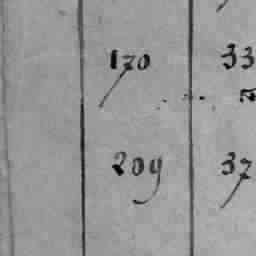 170 33
209 37